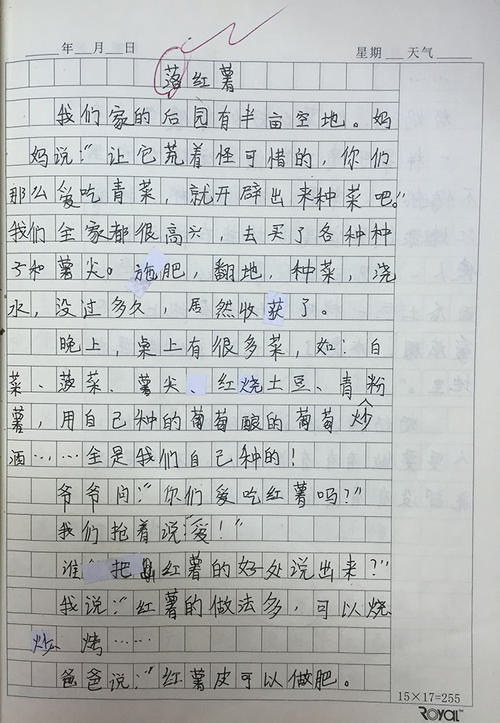 年 月 日 星期 天气
落红薯
我们家的后园有半亩空地。妈
妈说:“让它荒着怪可惜的,你们
那么爱吃青菜,就开辟出来种菜吧。”
我们全家都很高兴,去买了各种种
子和薯尖。施肥,翻地,种菜,浇
水,没过多久,居然收获了。
晚上,桌上有很多菜,如:白
菜、菠菜、薯尖、红烧土豆、青粉
薯,用自己种的葡萄酿的葡萄炒
酒……全是我们自己种的!
爷爷问:“你们爱吃红薯吗?”
我们抢着说“爱!”
谁 把 红薯的好处说出来?”
我说:“红薯的做法多,可以烧
炒 烤……
爸爸说:“红薯皮可以做肥。
15×17=255
ROYAL